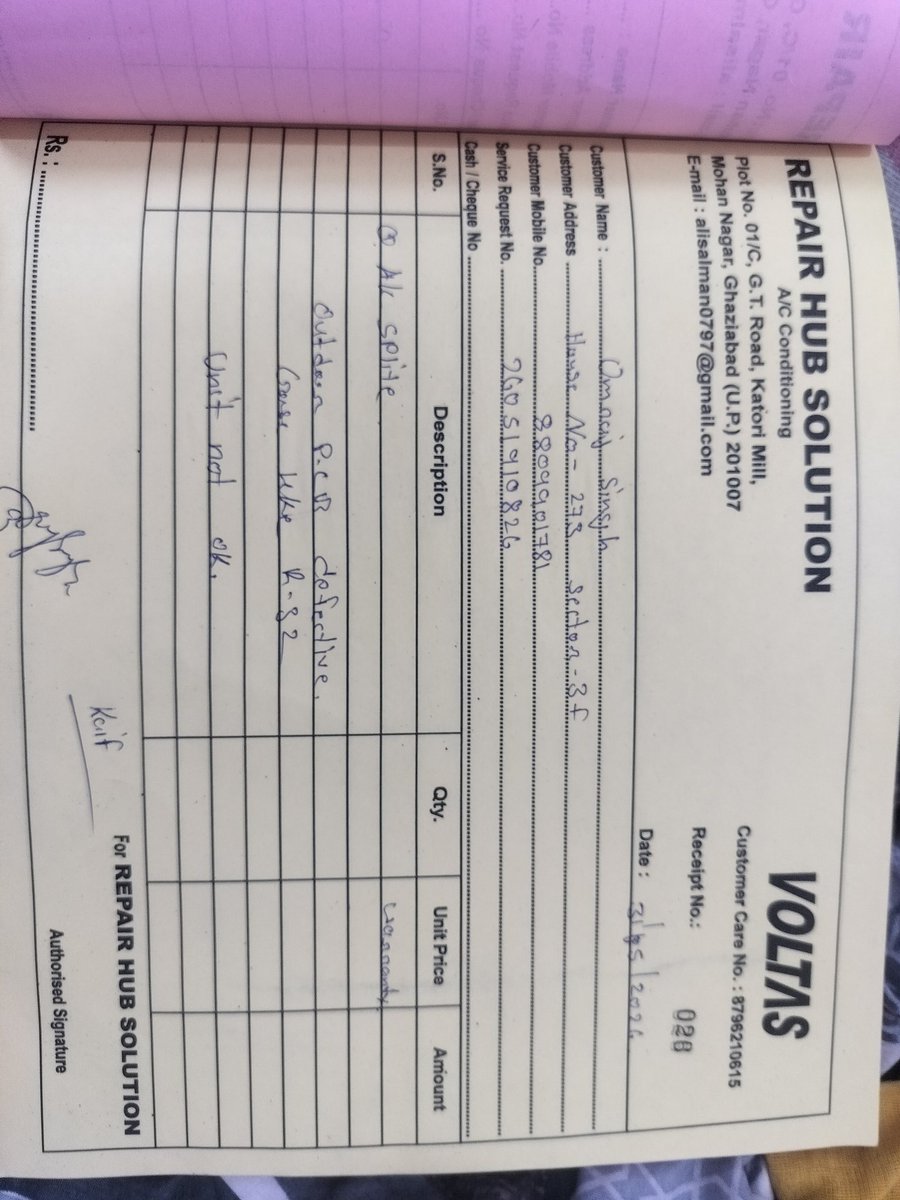 REPAIR HUB SOLUTION
A/C Conditioning
Plot No. 01/C, G.T. Road, Katori Mill,
Mohan Nagar, Ghaziabad (U.P.) 201007
E-mail : alisalman0797@gmail.com
VOLTAS
Customer Care No. : 8796210615
Receipt No.: 028
Date : 31/05/2026
Customer Name : Singh
Customer Address House No - 273 Sector - 3f
Customer Mobile No. 88099901781
Service Request No. 26051910826
Cash / Cheque No
S.No. Description Qty. Unit Price Amount
A/c splite warranty
Outdoor P.C.B defective.
Gas R-32
Unit not ok.
Rs. :
Kaif
For REPAIR HUB SOLUTION
Authorised Signature